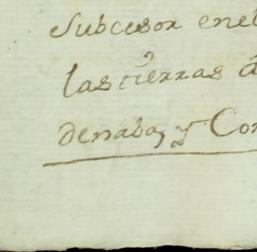 Subcesor enel
las tierras a
denaba, y Con